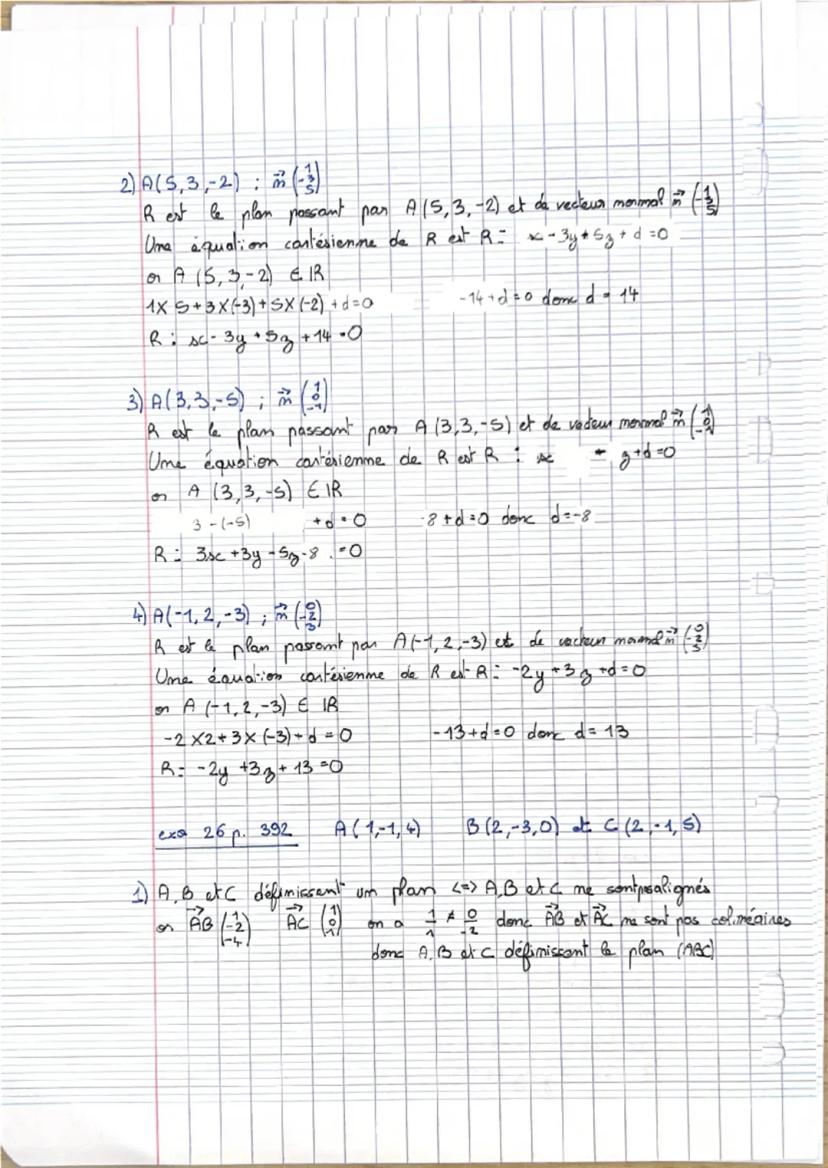 2) A(5,3,-2) ; n⃗ (1 -3 5)
R est le plan passant par A(5,3,-2) et de vecteur normal n⃗ (1 -3 5)
Une équation cartésienne de R est R: x - 3y + 5z + d = 0
or A (5,3,-2) ∈ R
1x5+3x(-3)+5x(-2)+d=0 -14+d=0 donc d = 14
R: x - 3y + 5z + 14 = 0
3) A(3,3,-5) ; n⃗ (1 0 -1)
R est le plan passant par A (3,3,-5) et de vecteur normal n⃗ (1 0 -1)
Une équation cartésienne de R est R : x - z+d=0
or A (3,3,-5) ∈ R
3-(-5) +d=0 8+d=0 donc d=-8
R: 3x +3y -5z -8 =0
4) A(-1,2,-3) ; n⃗ (0 -2 3)
R est le plan passant par A(-1,2,-3) et de vecteur normal n⃗ (0 -2 3)
Une équation cartésienne de R est R: -2y+3z+d=0
or A (-1,2,-3) ∈ R
-2x2+3x(-3)+d=0 -13+d=0 donc d= 13
R: -2y +3z + 13 =0
exo 26 p. 392 A(1,-1,4) B(2,-3,0) et C(2,-1,5)
1) A,B et C définissent un plan <=> A,B et C ne sont pas alignés
or AB⃗ (1 -2 -4) AC⃗ (1 0 1) on a 1/1 ≠ 0/-2 donc AB⃗ et AC⃗ ne sont pas colinéaires
donc A,B et C définissent le plan (ABC)